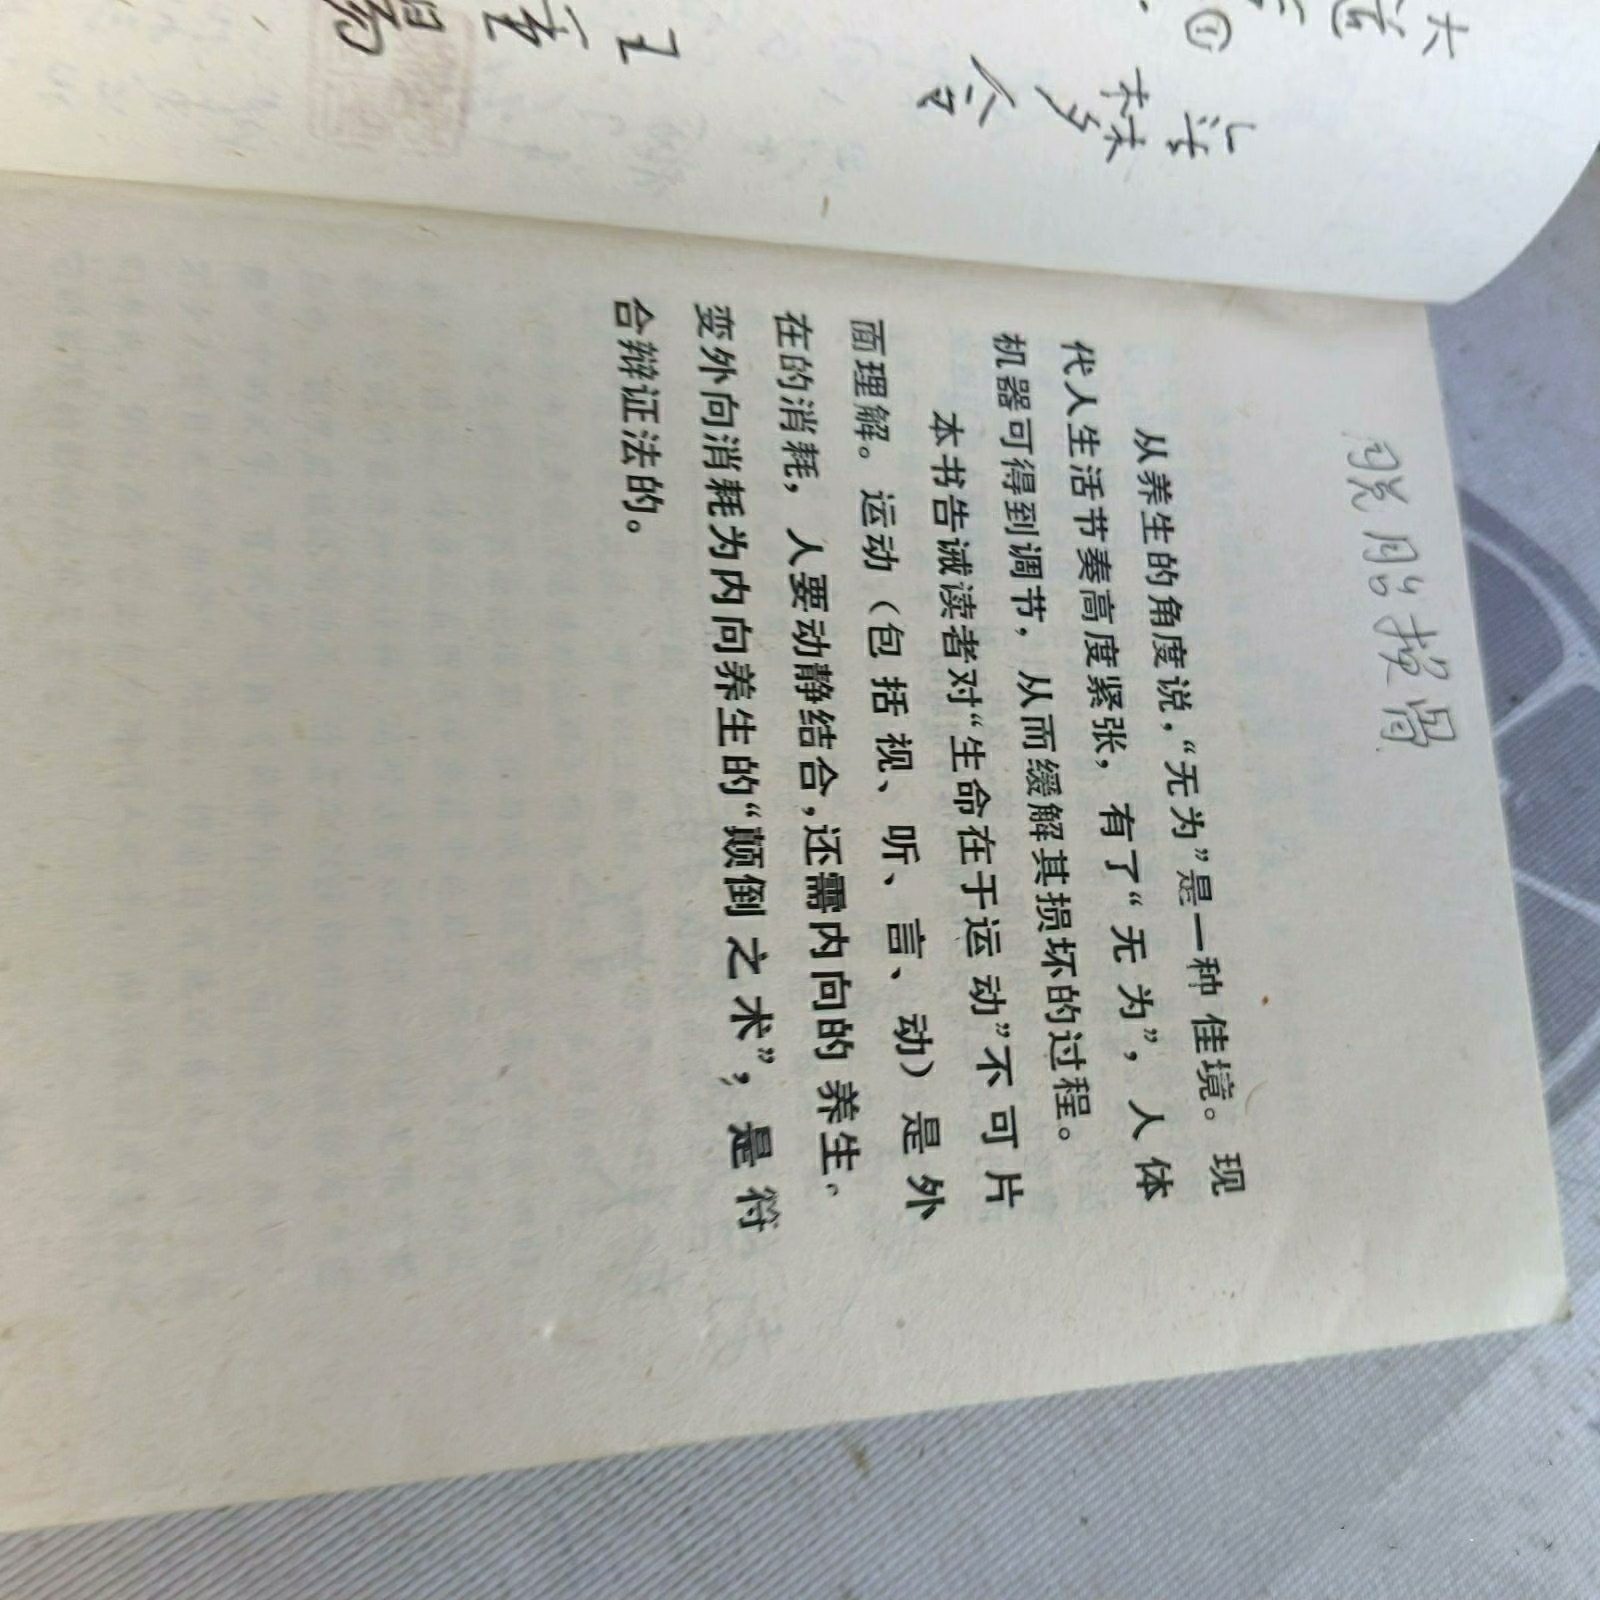 脱胎换骨
从养生的角度说，“无为”是一种佳境。现
代人生活节奏高度紧张，有了“无为”，人体
机器可得到调节，从而缓解其损坏的过程。
本书告诫读者对“生命在于运动”不可片
面理解。运动（包括视、听、言、动）是外
在的消耗，人要动静结合，还需内向的养生。
变外向消耗为内向养生的“颠倒之术”，是符
合辩证法的。